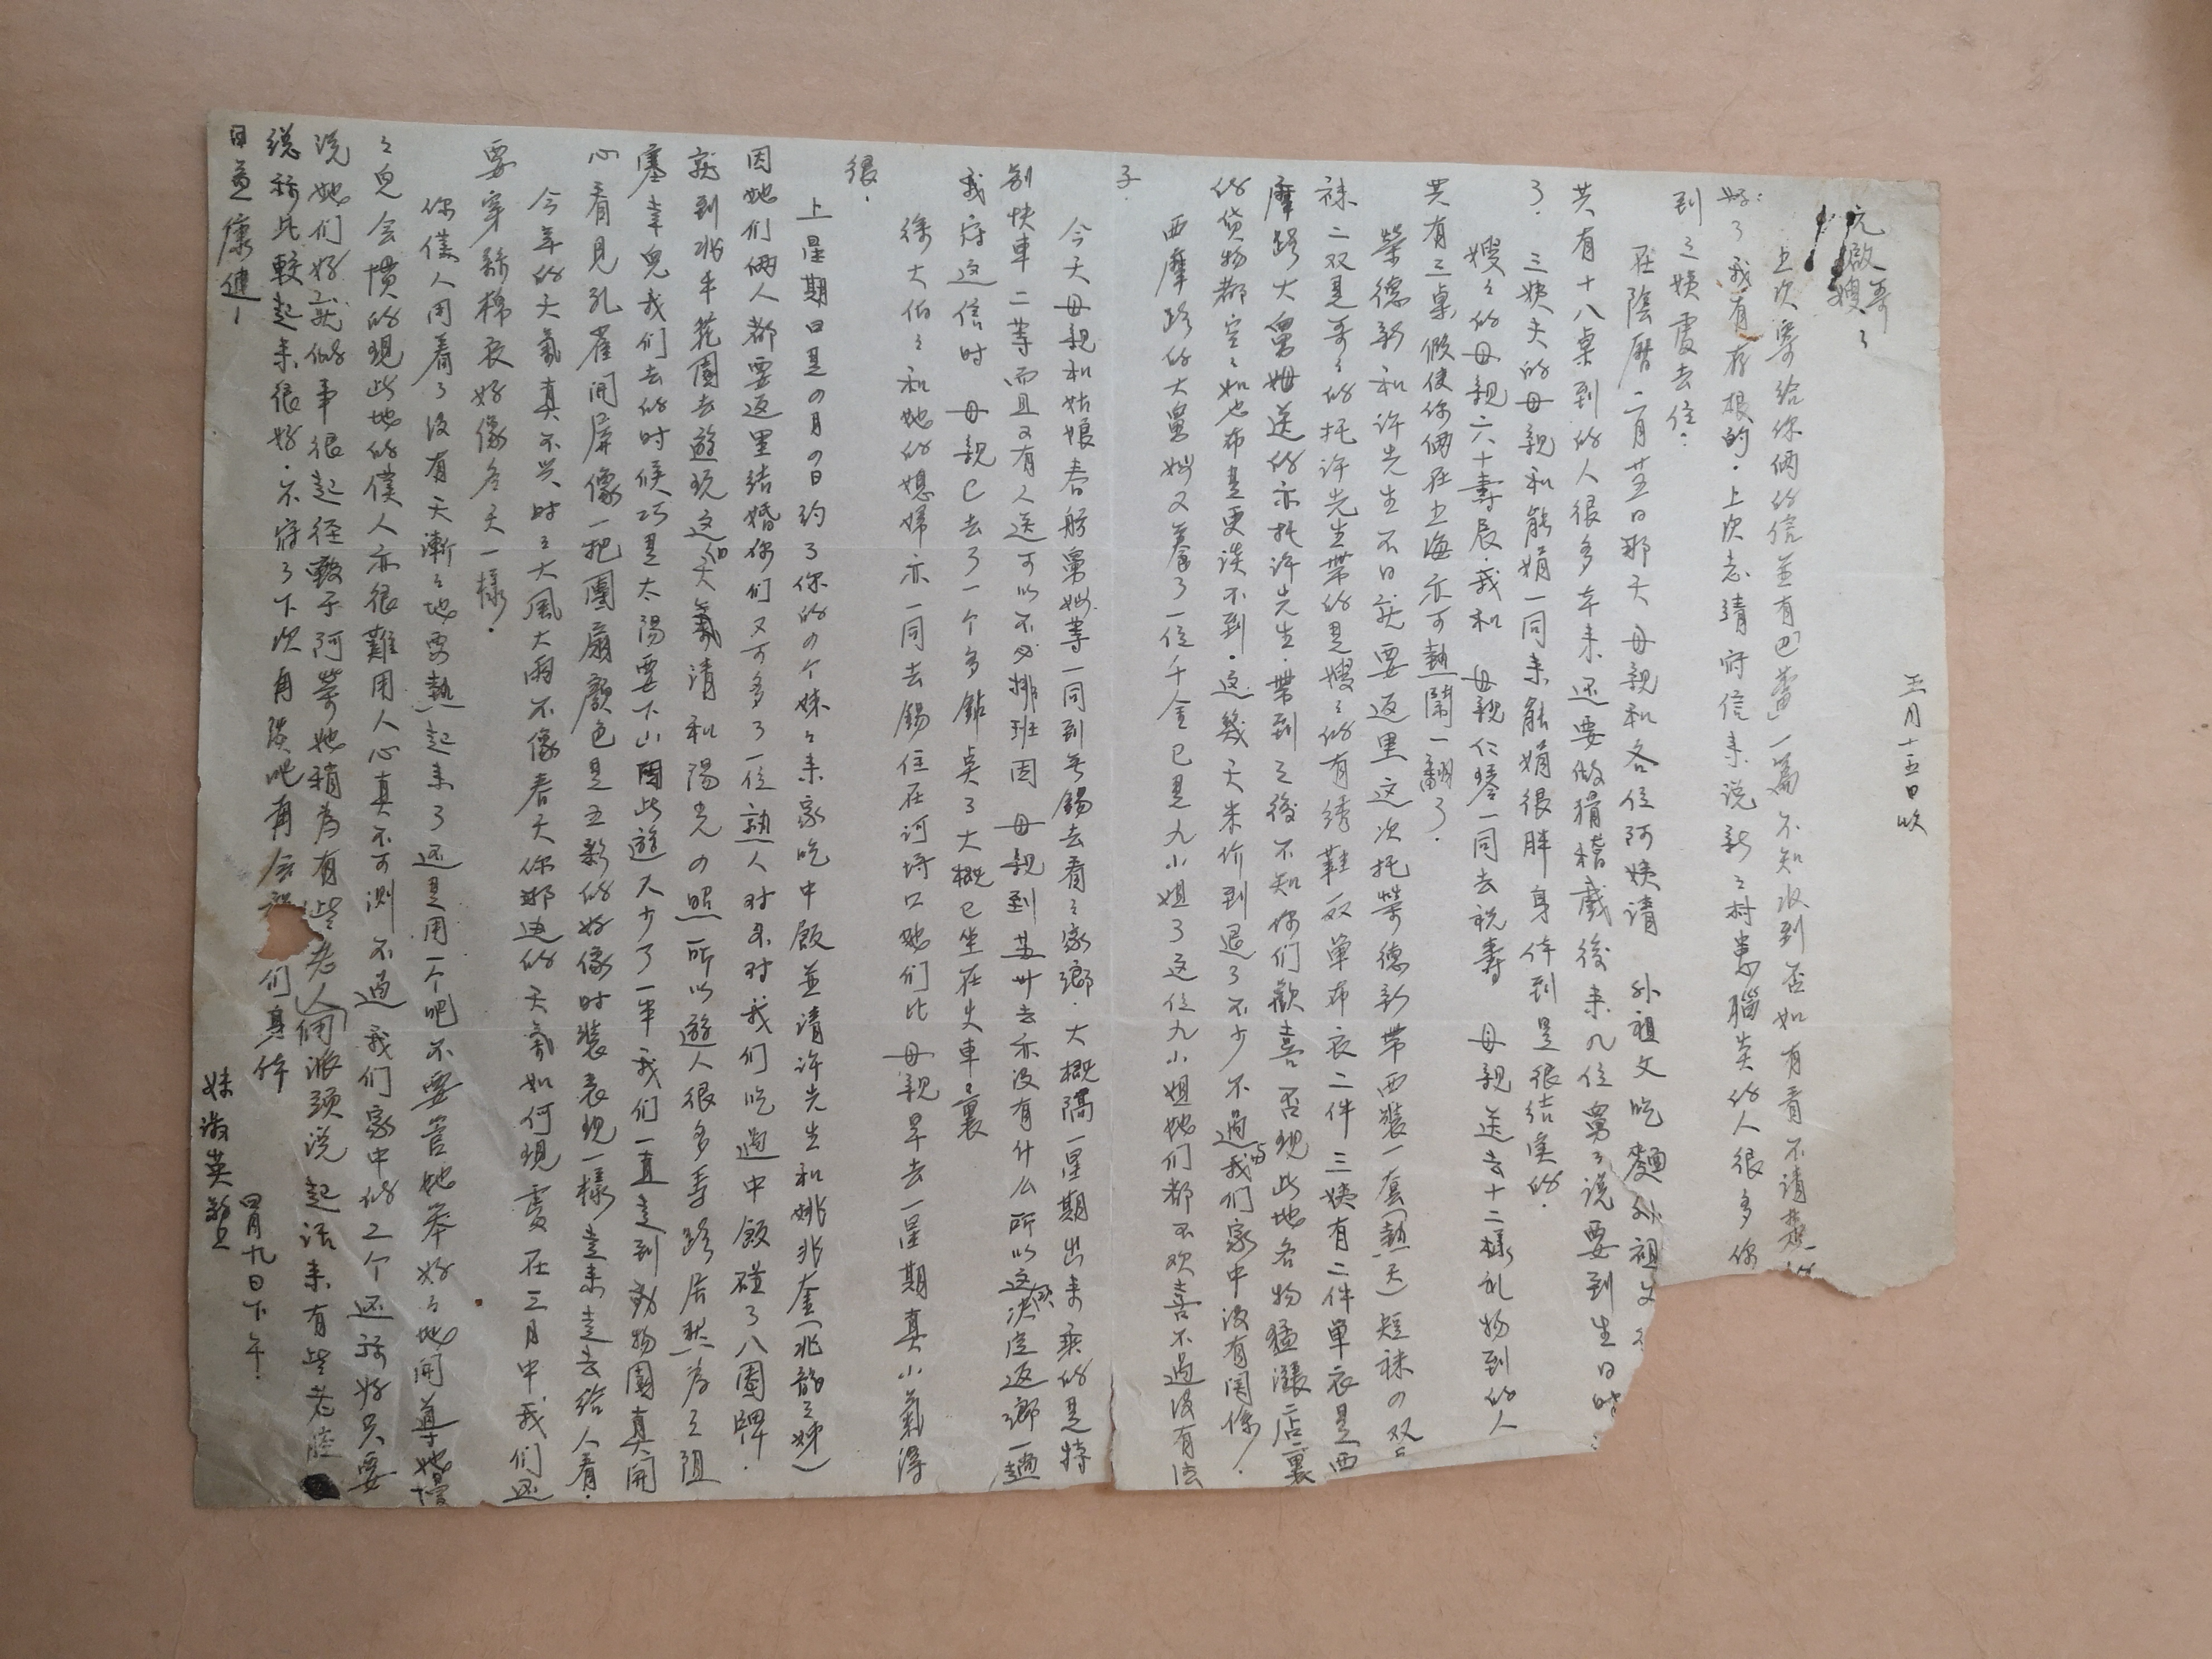 五月十五日收
元啟哥
嫂了
上次寄给你俩的信並有「巴蕾」一篇不知收到否如有看不清楚的
好了我有存根的．上次志靖寄信来说新之村患腦炎的人很多你
到之姨處去住：
在陰曆二月廿五日那天 母親和各位阿姨请 外祖父吃麵外祖父
共有十八桌到的人很多本来还要做猾稽戲後来九位舅之说要到生日时
了．三姨夫的母親和能娟一同来能娟很胖身体到是很结实的．
嫂之的母親六十壽辰．我和 母親仁琴一同去祝壽 母親送去十二樣礼物到的人
共有三桌假使你俩在上海亦可熱鬧一翻了．
榮德新和许先生不日就要返里这次托榮德新带西裝一套(熱天)短袜の双
袜二双是哥之的托许先生带的是嫂之的有绣鞋一双单布衣二件三姨有二件单衣是西
摩路大舅姆送的亦托许先生．带到之後不知你们歡喜否现此地各物猛漲店裏
的货物都空之如也布是更谈不到．这幾天米价到退了不少不過我们家中没有関係．
西摩路的大舅姆又養了一位千金已是九小姐了这位九小姐她们都不欢喜不過没有法
子．
今天母親和姑娘春舫舅姆等一同到无锡去看之家鄉．大概隔一星期出来乘的是特
别快車二等而且又有人送可以不必排班因 母親到苏州去亦没有什么所以这次决定返鄉一趟
我寄这信时 母親已去了一个多鈡点了大概已坐在火車裏
徐大伯之和她的媳婦亦一同去锡住在河埒口她们比 母親早去一星期真小氣得
很．
上星期日是の月の日约了你的の个妹之来家吃中飯並请许先生和姚兆奎(兆韵之姊)
因她们俩人都要返里结婚你们又可多了一位熟人对不对我们吃過中飯碰了八圈牌．
就到兆丰花園去遊玩这的天氣清和陽光の照所以遊人很多寿路居然为之阻
塞幸兒我们去的时候巧是太陽要下山因此遊人少了一半我们一直走到動物園真開
心看見孔雀開屏像一把團扇顏色是五彩的好像时裝表现一樣走来走去给人看．
今年的天氣真不災时之大風大雨不像春天你那边的天氣如何现處在三月中我们还
要穿絲棉衣好像冬天一樣．
你僕人用着了没有天漸之地要熱起来了还是用一个吧不要管她笨好之地開導她慢
之兒会慣的现此地的僕人亦很難用人心真不可測不過我们家中的工个还称好只要
说她们好就做事很起径毅子阿荣她稍为有些老人俩派頭说起话来有些老腔
總称比較起来很好．不寄了下次再谈吧再会祝 们身体
日益康健！
妹淑英敬上
四月九日下午．